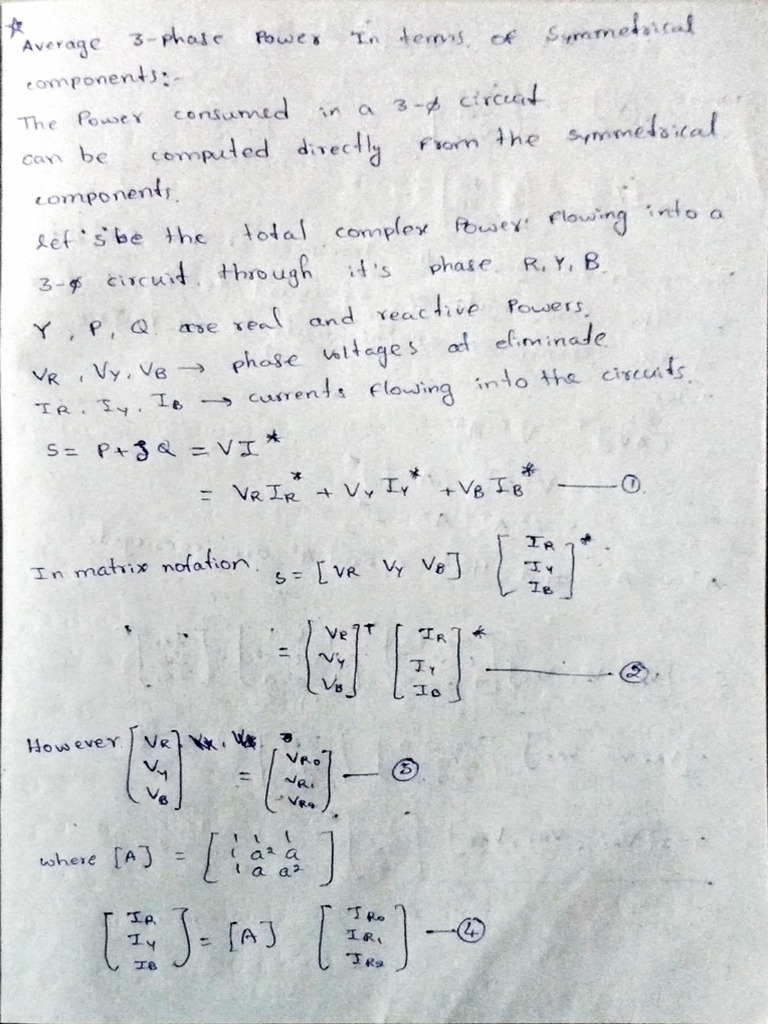 * Average 3-phase Power In terms of Symmetrical
components:-
The Power consumed in a 3-ϕ circuit
can be computed directly From the symmetrical
components.
let 's' be the total complex Power flowing into a
3-ϕ circuit through it's phase R, Y, B
Y, P, Q are real and reactive Powers.
VR, VY, VB → phase voltages at eliminate
IR, IY, IB → currents flowing into the circuits.
S = P+jQ = VI*
= VR IR* + VY IY* + VB IB* — ①
In matrix notation. S = [VR VY VB] [IR IY IB]*
= [VR VY VB]T [IR IY IB]* — ②
However [VR VY VB] = [VR0 VR1 VR2] — ③
where [A] = [1 1 1
1 a² a
1 a a²]
[IR IY IB] = [A] [IR0 IR1 IR2] — ④